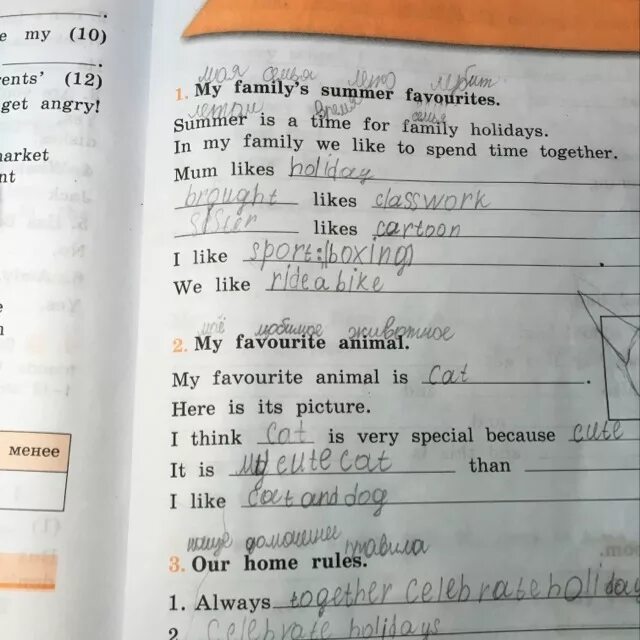 e my (10)
ents' (12)
get angry!
arket
nt
менее
моя семья лето любит
1. My family's summer favourites.
летом время семье
Summer is a time for family holidays.
In my family we like to spend time together.
Mum likes holiday
brought likes classwork
sister likes cartoon
I like sport:(boxing)
We like ride a bike
моё любимое животное
2. My favourite animal.
My favourite animal is cat.
Here is its picture.
I think cat is very special because cute
It is my cute cat than
I like cat and dog
домашнее правила
3. Our home rules.
1. Always together celebrate holiday
2 celebrate holidays